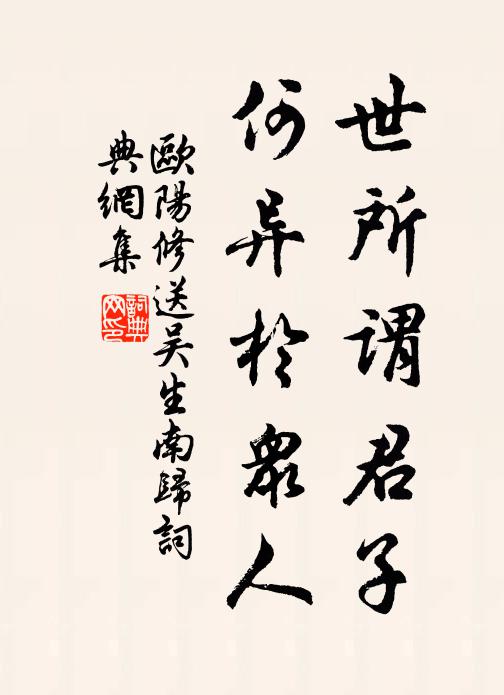 世所謂君子
何异於衆人
歐陽修送吴生南歸詞
典網集
詞典
网印